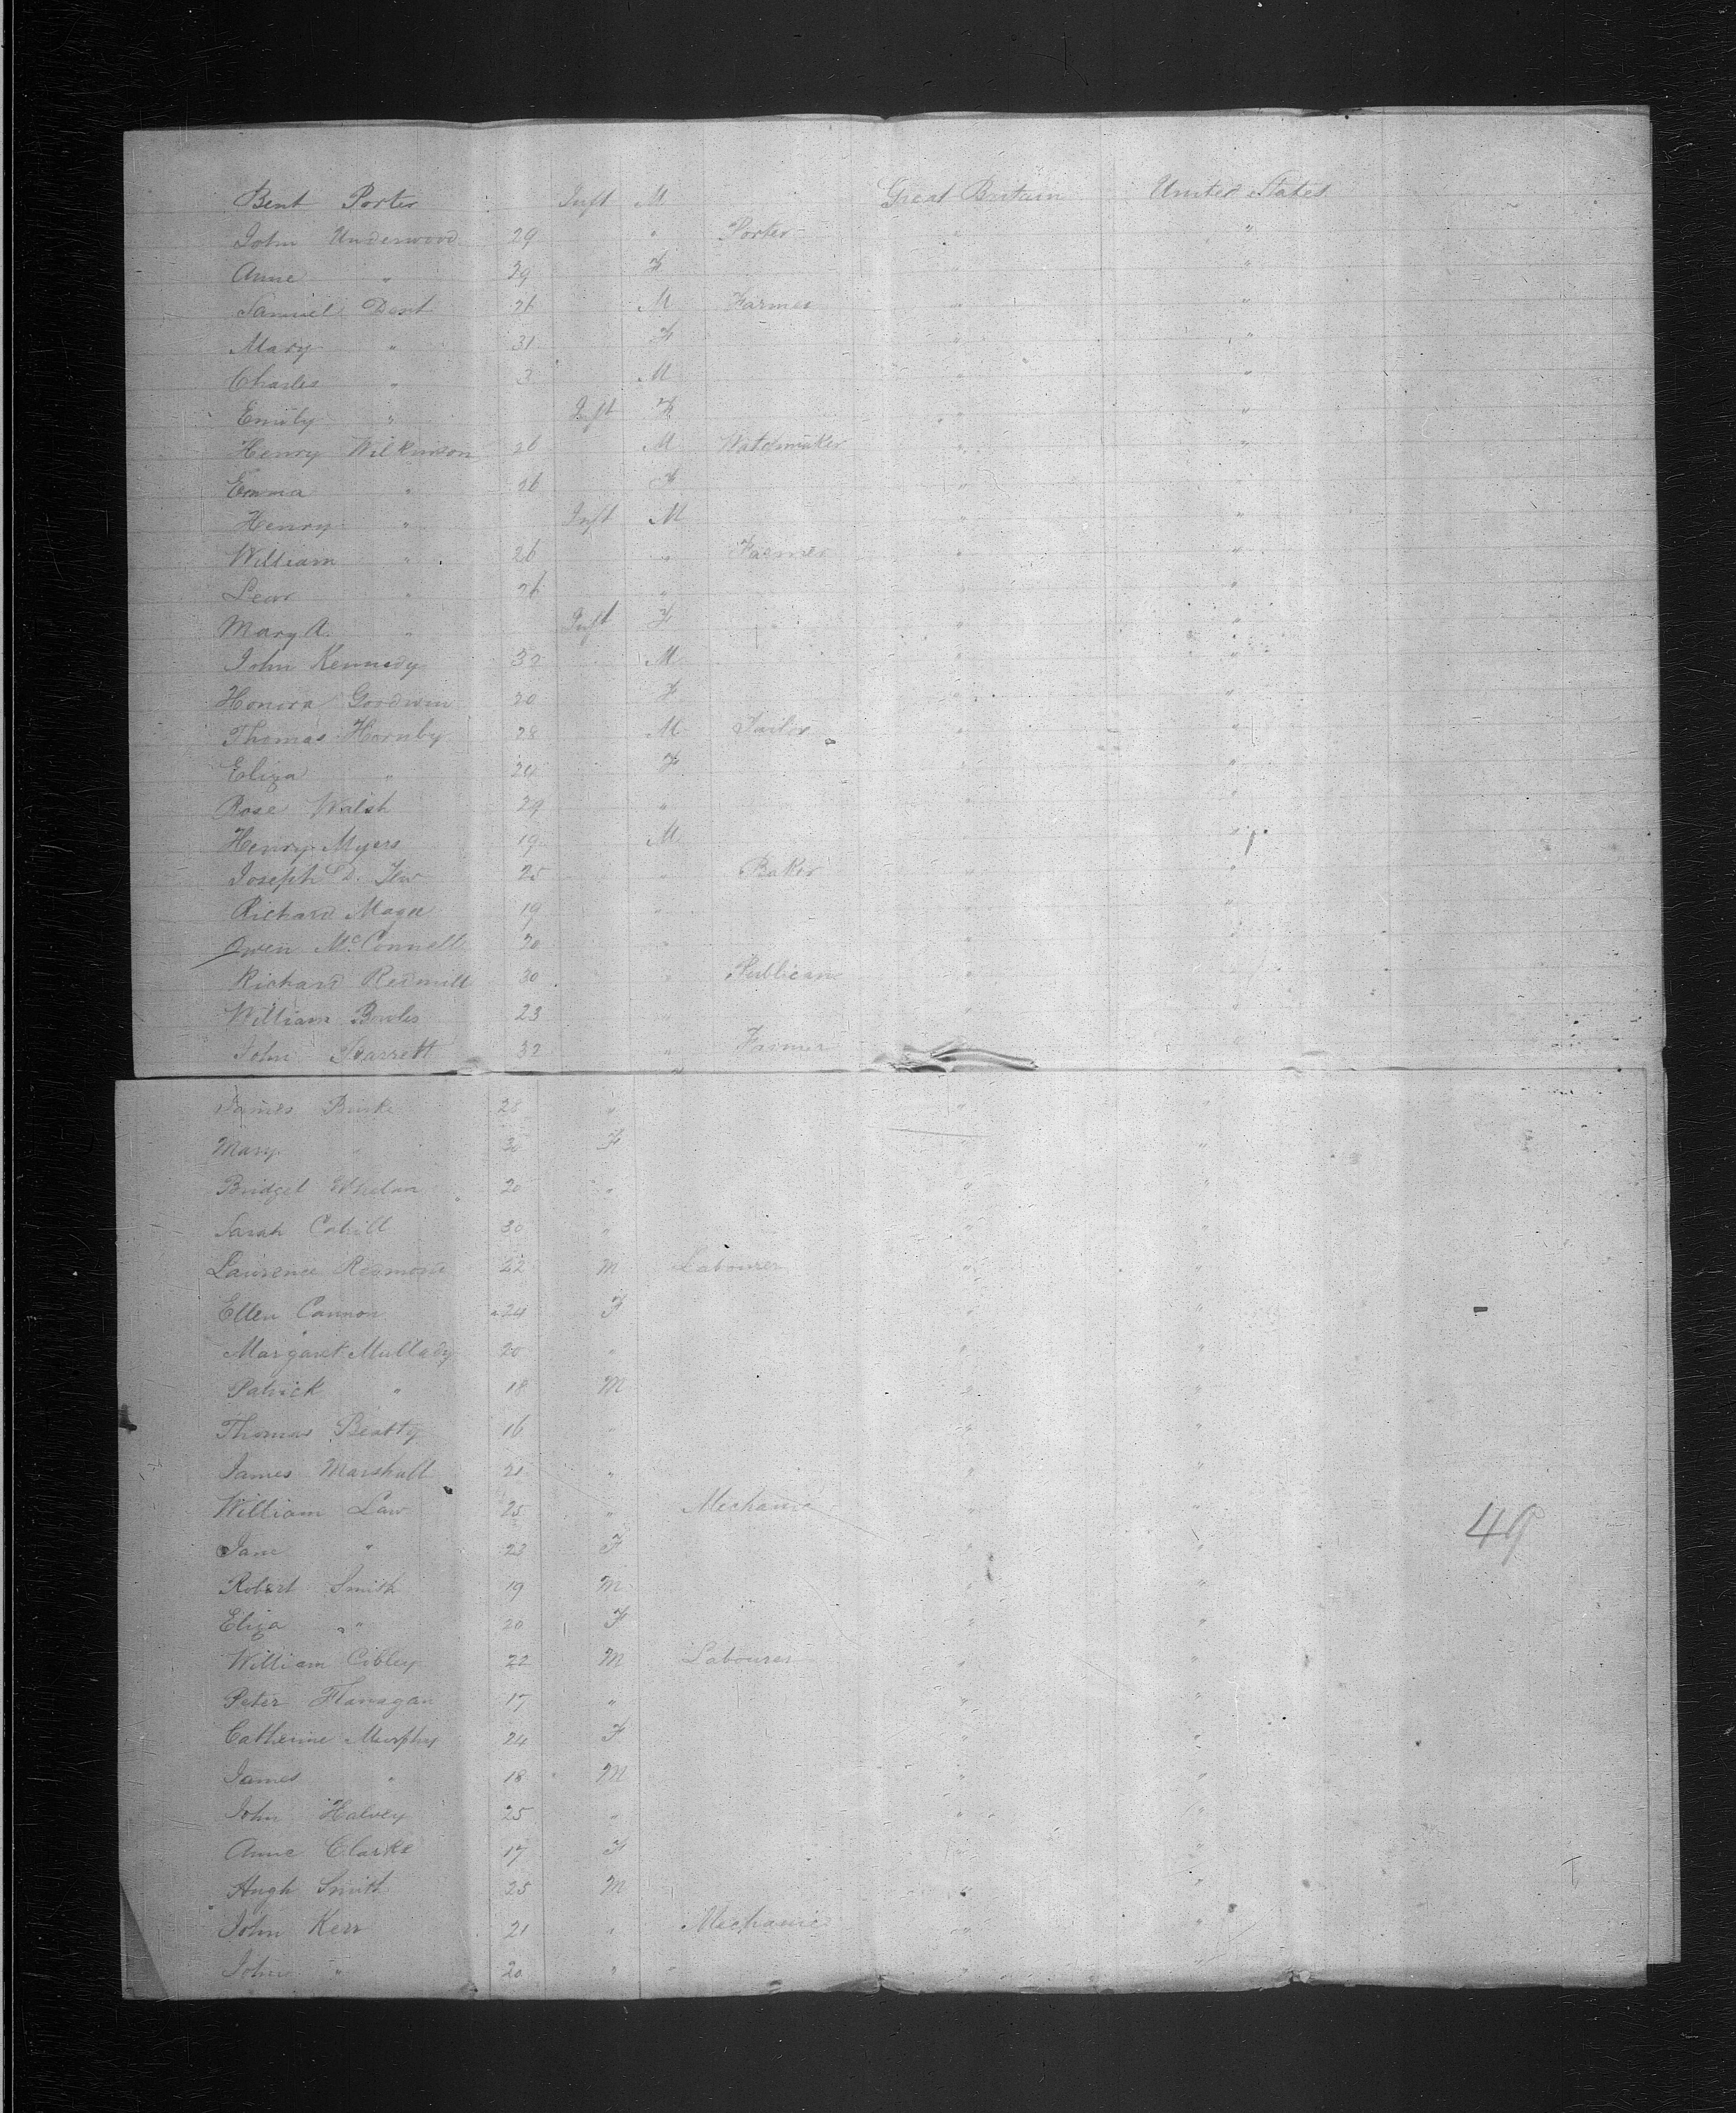 Bent Porter Inft M Great Britain United States
John Underwood 29 " Porter " "
Anne " 29 F "
Samuel Dent 26 M Farmer " "
Mary " 31 F " "
Charles " 3 M " "
Emily " Inft F " "
Henry Wilkinson 26 M Watchmaker " "
Emma " 26 F " "
Henry " Inft M " "
William " 26 " Farmer " "
Lear " 26 " " "
Mary A. " Inft F " "
John Kennedy 32 M " "
Honora Goodwin 20 F " "
Thomas Hornby 28 M Tailor " "
Eliza " F " "
Rose Walsh 29 " " "
Henry Myers 19 M " "
Joseph D. 25 " Baker " "
Richard Magee 19 " " "
Owen McConnell 20 " " "
Richard Redmill 30 " Publican " "
William Bowles 23 " " "
John Barrett 32 " Farmer "
James Burke 28 " " "
Mary " 30 F " "
Bridget Whelan 20 " " "
Sarah Cahill 30 " " "
Lawrence Redmond 22 M Labourer " "
Ellen Cannon 24 F " "
Margaret Mullady 20 " " "
Patrick " 18 M " "
Thomas Beatty 16 " " "
James Marshall 21 " " "
William Law 25 " Mechanic " "
Jane " 23 F " "
49
Robert Smith 19 M " "
Eliza " 20 F " "
William Cibley 22 M Labourer " "
Peter Flanagan 17 " " "
Catherine Murphy 24 F " "
James " 18 M " "
John Halvey 25 " " "
Anne Clarke 17 F " "
Hugh Smith 25 M " "
John Kerr 21 " Mechanic " "
John " 20 " " " "